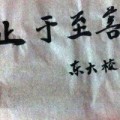 止于至善
东大校